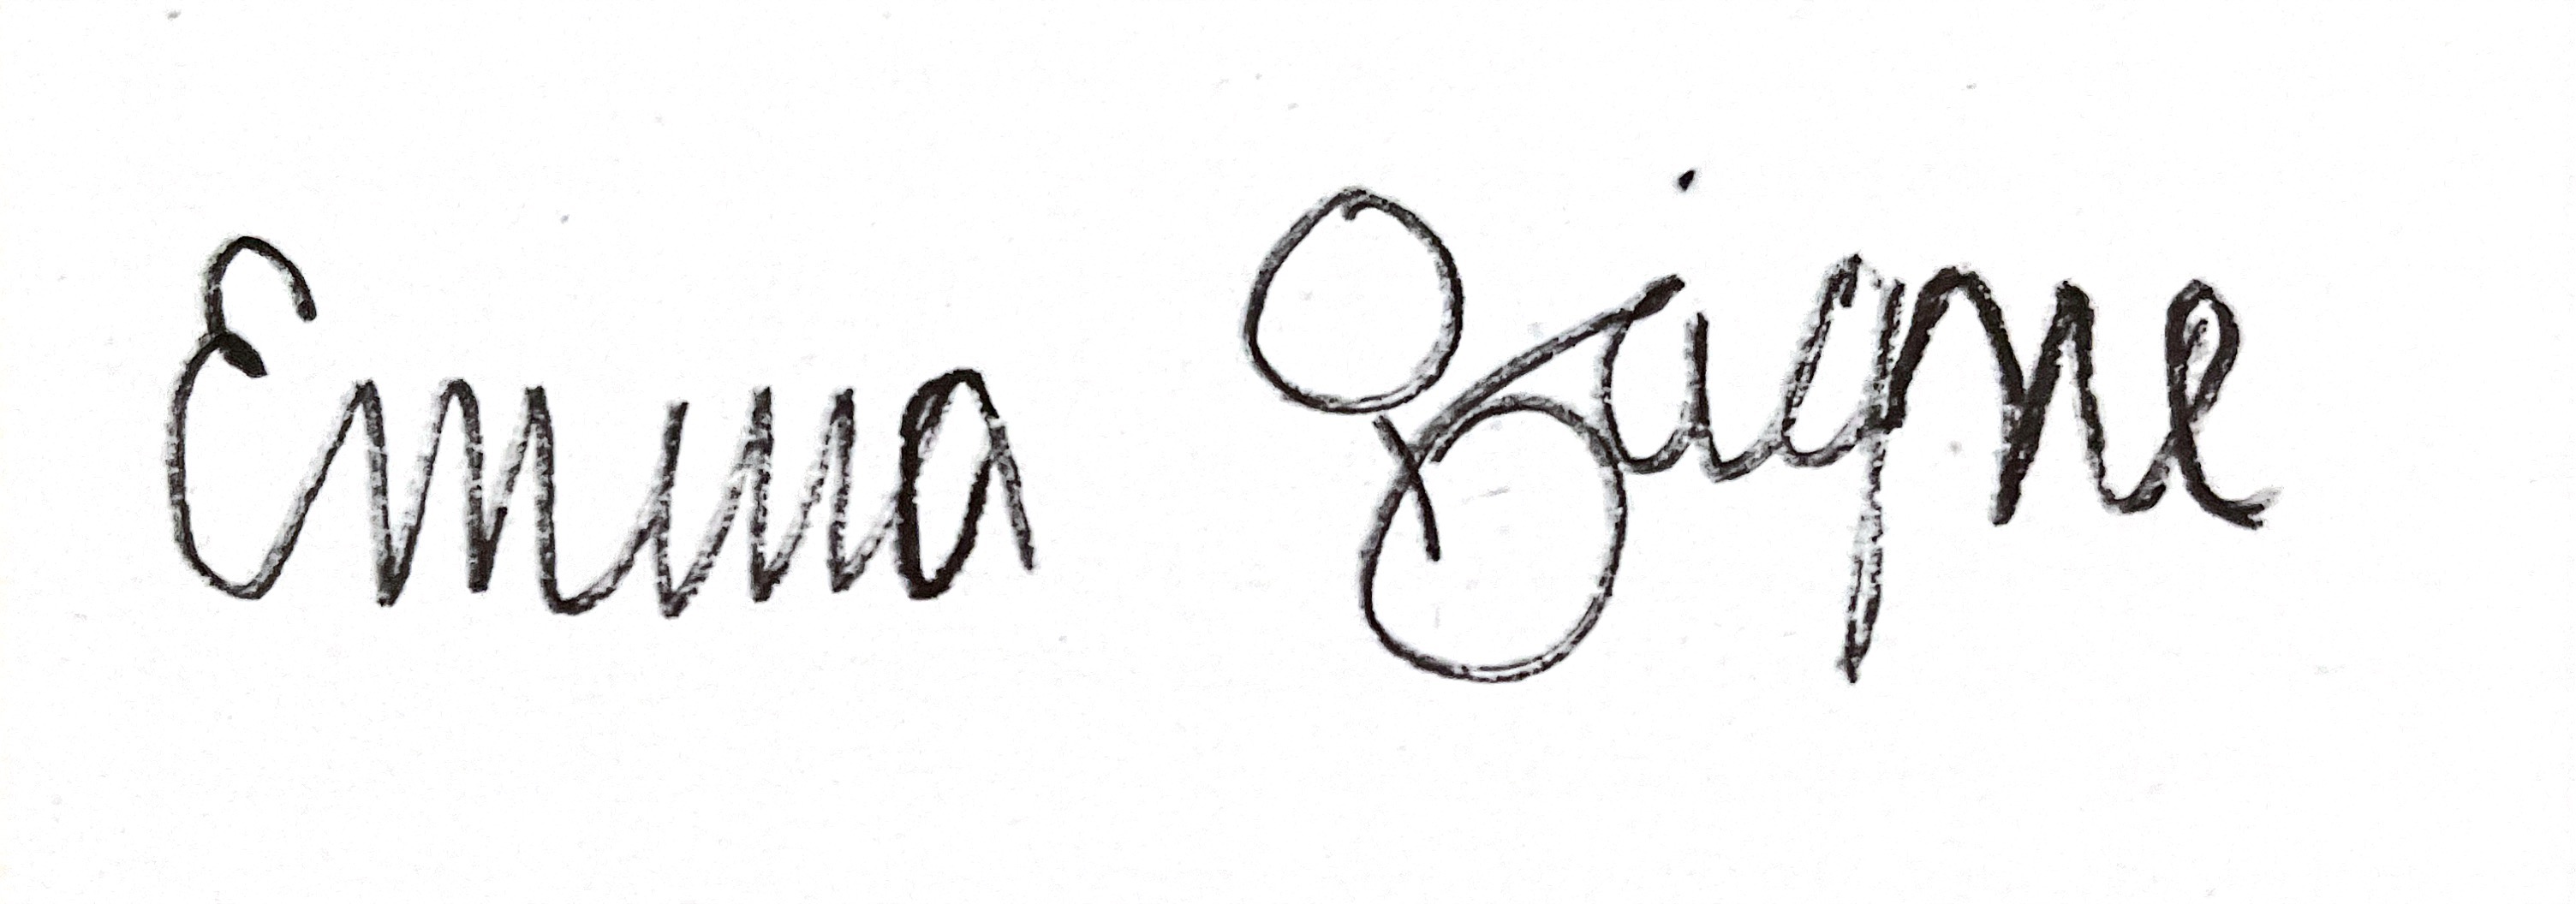 Emma Gaigne